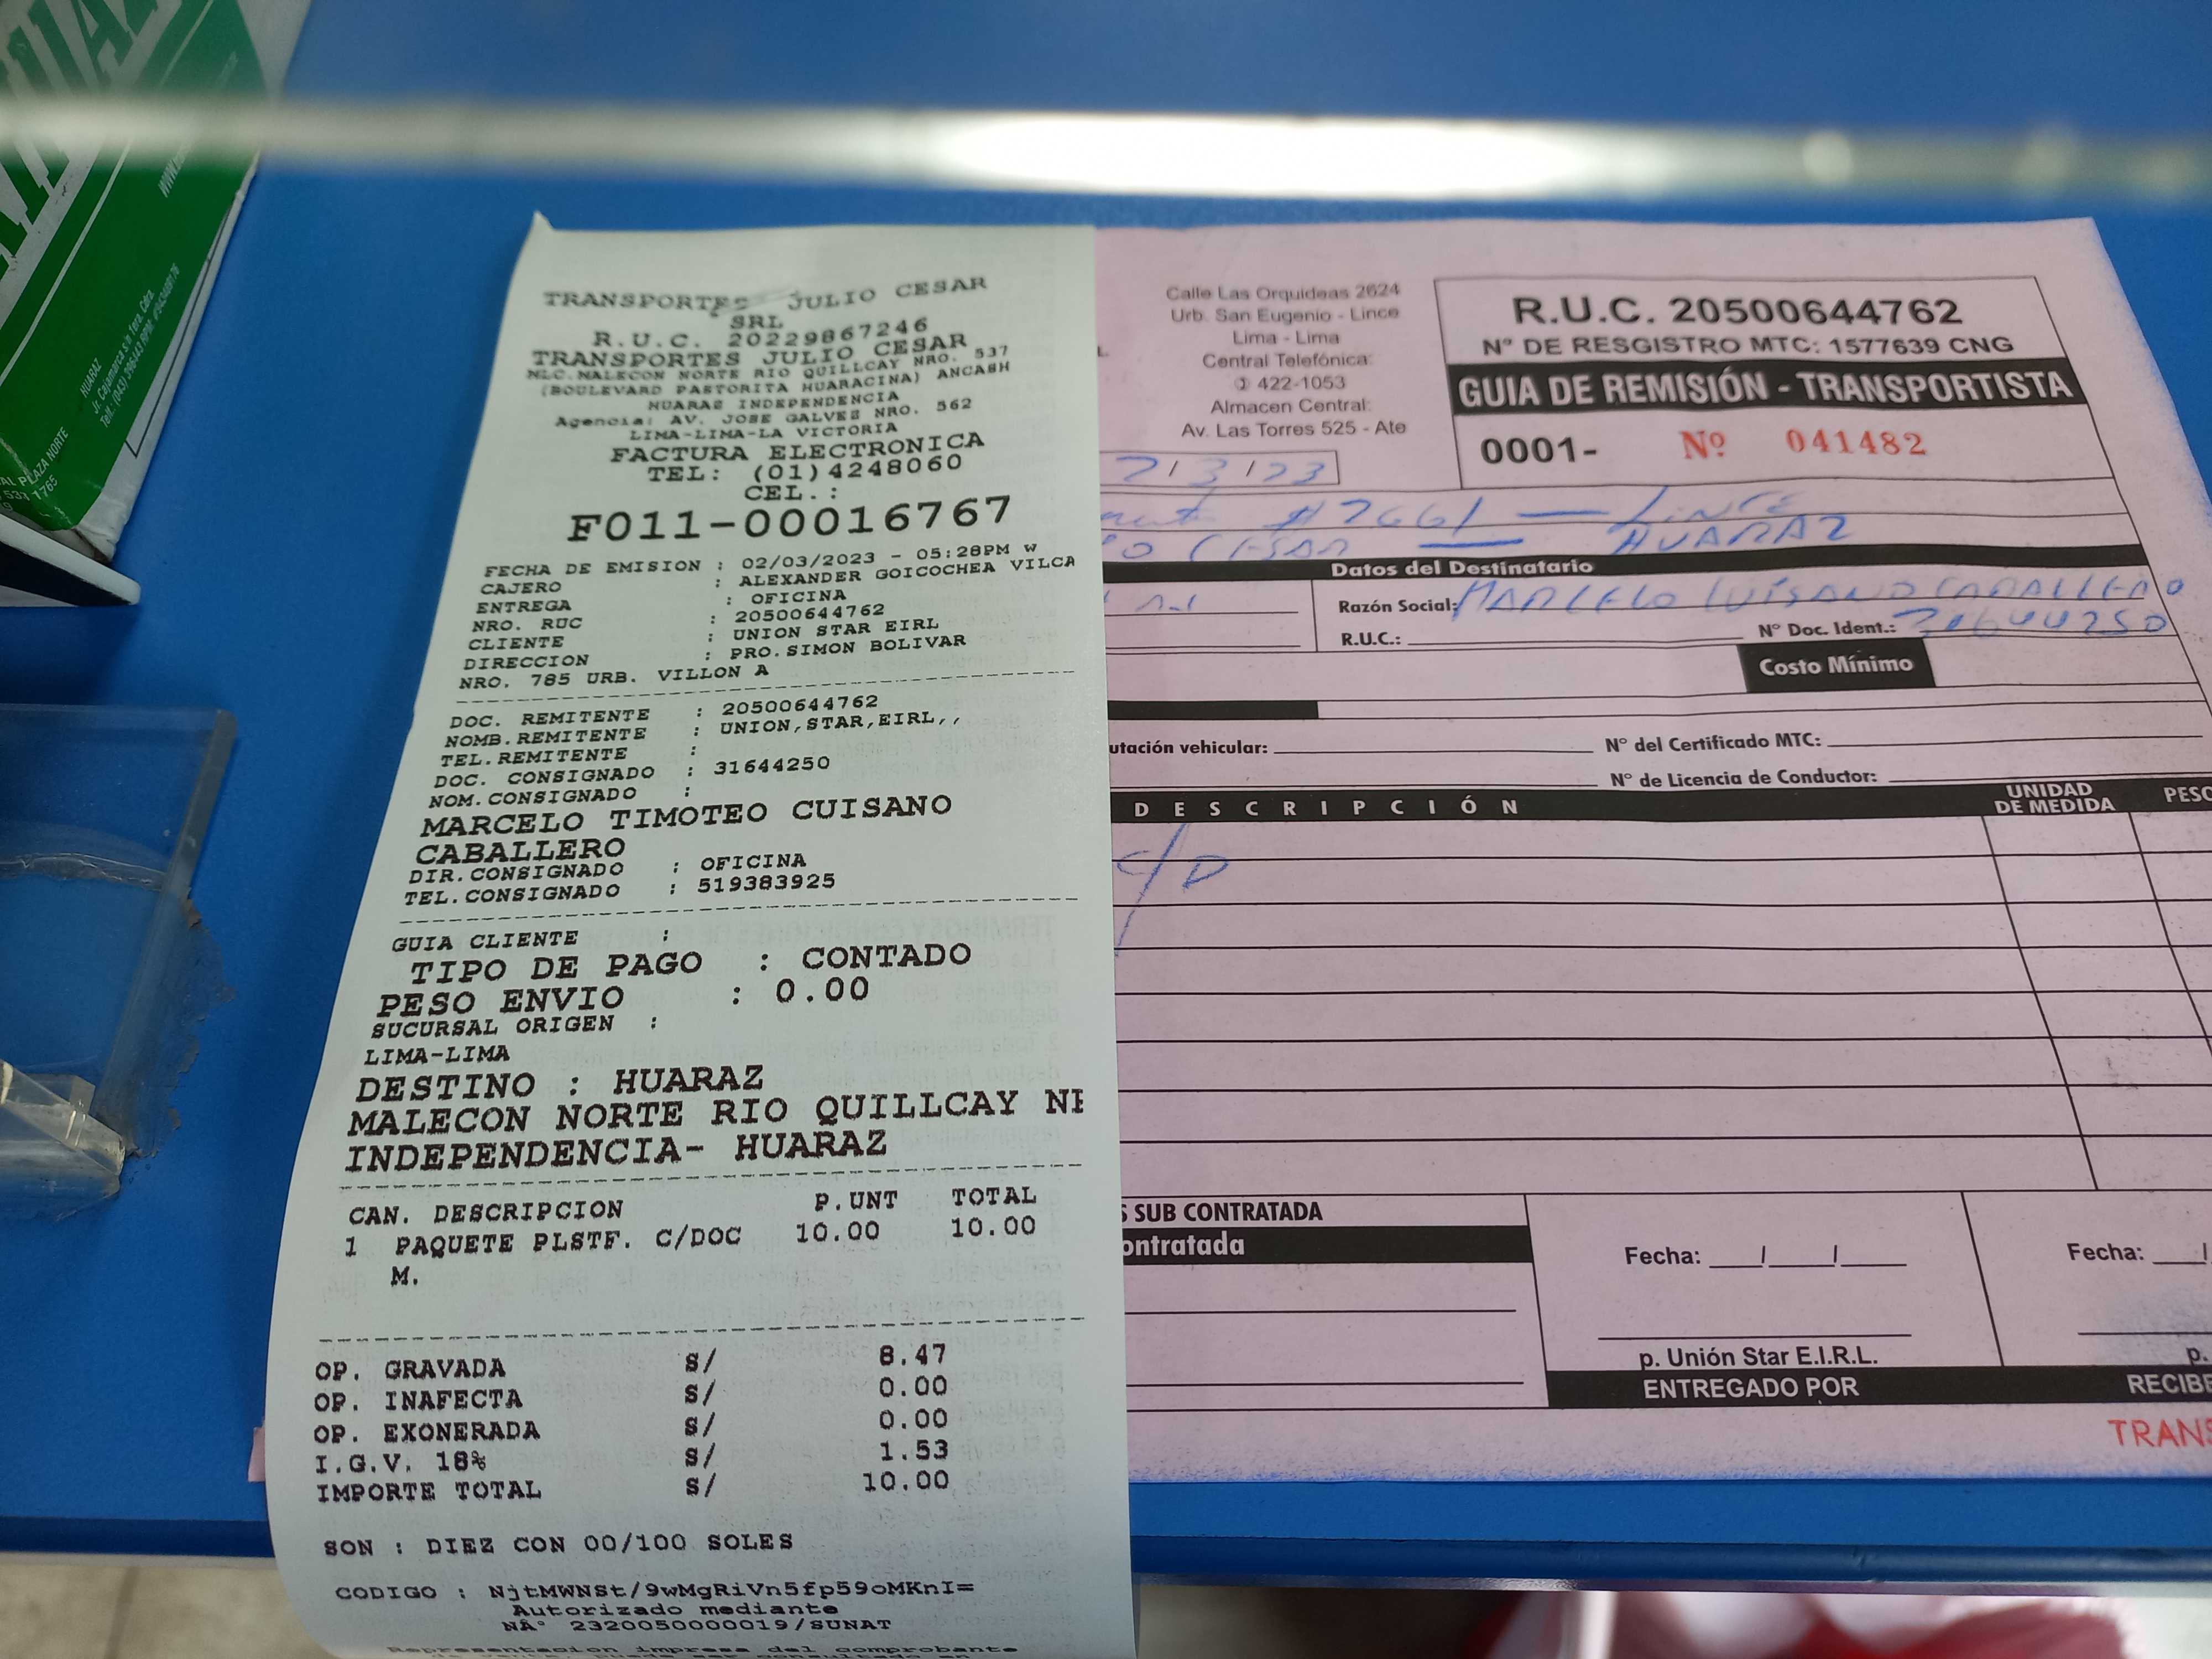 HUARAZ
Jr. Cajamarca s/n 1era. Cdra.
PLAZA NORTE
TRANSPORTES JULIO CESAR
SRL
R.U.C. 20229867246
TRANSPORTES JULIO CESAR
NLC.MALECON NORTE RIO QUILLCAY NRO. 537
(BOULEVARD PASTORITA HUARACINA) ANCASH
HUARAZ INDEPENDENCIA
Agencia: AV. JOSE GALVES NRO. 562
LIMA-LIMA-LA VICTORIA
FACTURA ELECTRONICA
TEL: (01)4248060
CEL.:
F011-00016767
FECHA DE EMISION : 02/03/2023 - 05:28PM W
CAJERO : ALEXANDER GOICOCHEA VILCA
ENTREGA : OFICINA
NRO. RUC : 20500644762
CLIENTE : UNION STAR EIRL
DIRECCION : PRO.SIMON BOLIVAR
NRO. 785 URB. VILLON A
DOC. REMITENTE : 20500644762
NOMB.REMITENTE : UNION,STAR,EIRL,,
TEL.REMITENTE :
DOC. CONSIGNADO : 31644250
NOM.CONSIGNADO :
MARCELO TIMOTEO CUISANO
CABALLERO
DIR.CONSIGNADO : OFICINA
TEL.CONSIGNADO : 519383925
GUIA CLIENTE :
TIPO DE PAGO : CONTADO
PESO ENVIO : 0.00
SUCURSAL ORIGEN :
LIMA-LIMA
DESTINO : HUARAZ
MALECON NORTE RIO QUILLCAY
INDEPENDENCIA- HUARAZ
CAN. DESCRIPCION P.UNT TOTAL
1 PAQUETE PLSTF. C/DOC 10.00 10.00
M.
OP. GRAVADA S/ 8.47
OP. INAFECTA S/ 0.00
OP. EXONERADA S/ 0.00
I.G.V. 18% S/ 1.53
IMPORTE TOTAL S/ 10.00
SON : DIEZ CON 00/100 SOLES
CODIGO : NjtMWNSt/9wMgRiVn5fp59oMKnI=
Autorizado mediante
NÂ° 2320050000019/SUNAT
Representacion impresa del comprobante
Calle Las Orquideas 2624
Urb. San Eugenio - Lince
Lima - Lima
Central Telefónica:
422-1053
Almacen Central:
Av. Las Torres 525 - Ate
R.U.C. 20500644762
N° DE RESGISTRO MTC: 1577639 CNG
GUIA DE REMISIÓN - TRANSPORTISTA
0001- Nº 041482
2/3/23
#2661 — LINCE
CESAR — HUARAZ
Datos del Destinatario
Razón Social: MARCELO CUÍSANO CABALLERO
R.U.C.: N° Doc. Ident.: 31644250
Costo Mínimo
utación vehicular: N° del Certificado MTC:
N° de Licencia de Conductor:
DESCRIPCIÓN UNIDAD DE MEDIDA PESO
C/D
SUB CONTRATADA
ontratada
Fecha: / /
Fecha: /
p. Unión Star E.I.R.L.
p.
ENTREGADO POR
RECIBE
TRANS